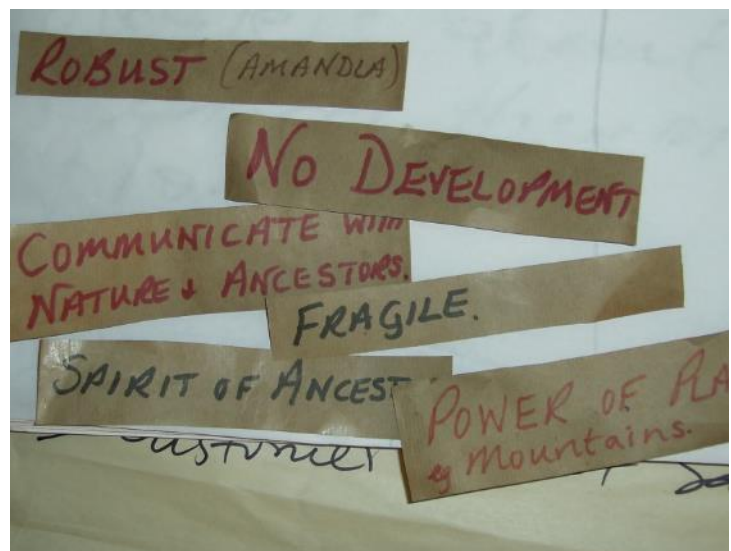 ROBUST (AMANDLA)
NO DEVELOPMENT
COMMUNICATE WITH
NATURE & ANCESTORS.
FRAGILE.
SPIRIT OF ANCEST
POWER OF PLA
eg Mountains.